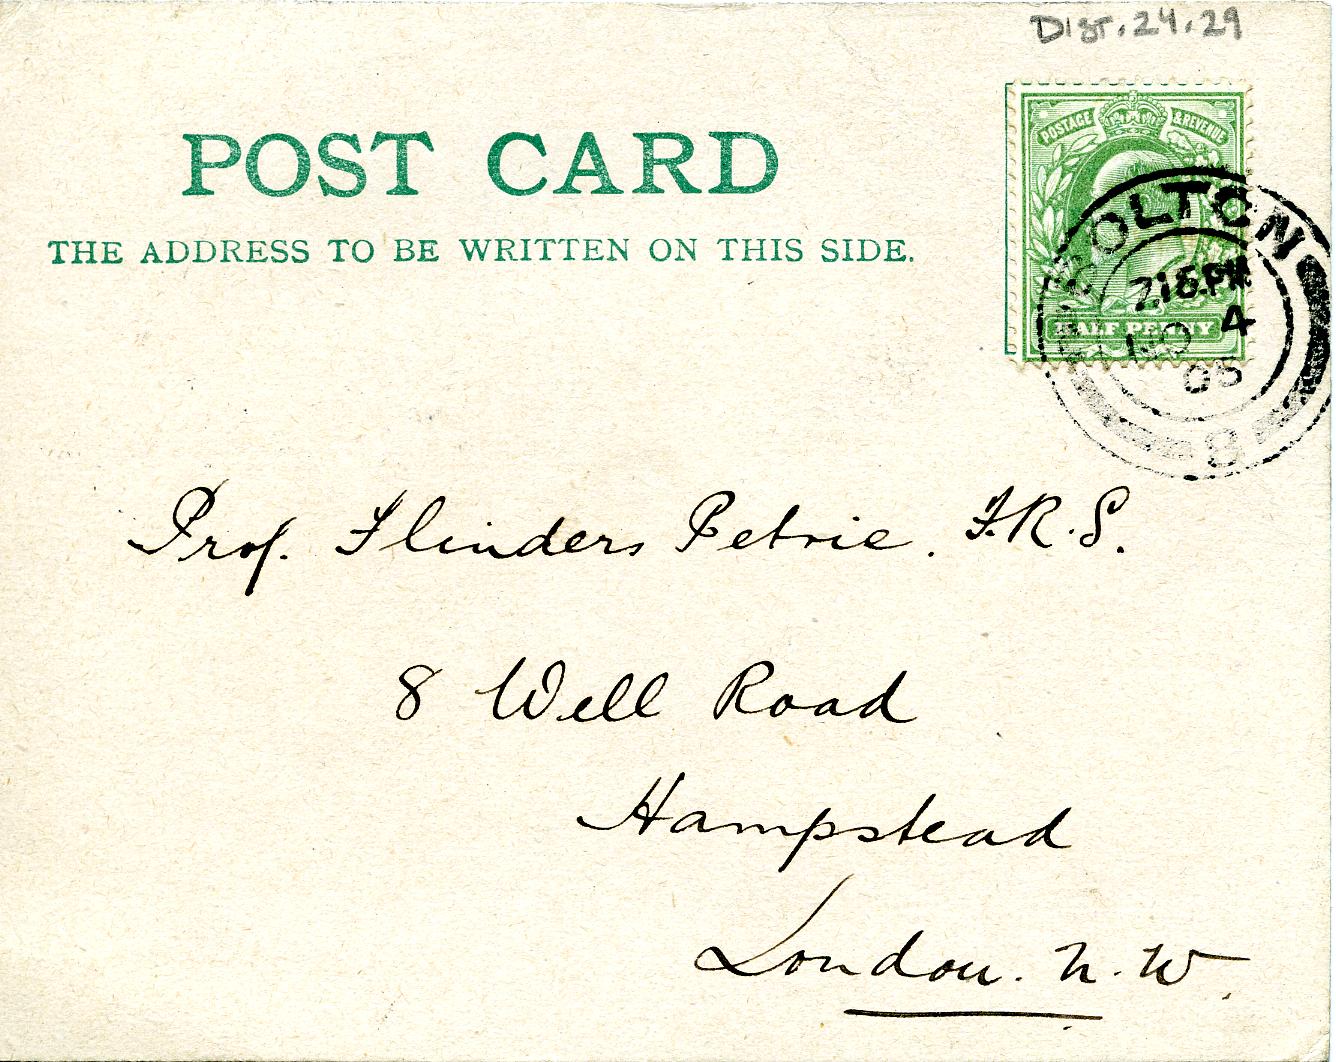 Dist.24.29
POST CARD
THE ADDRESS TO BE WRITTEN ON THIS SIDE.
POSTAGE & REVENUE
HALF PENNY
BOLTON
2.15.PM
NO 4
05
8
Prof. Flinders Petrie. F.R.S.
8 Well Road
Hampstead
London. N.W.